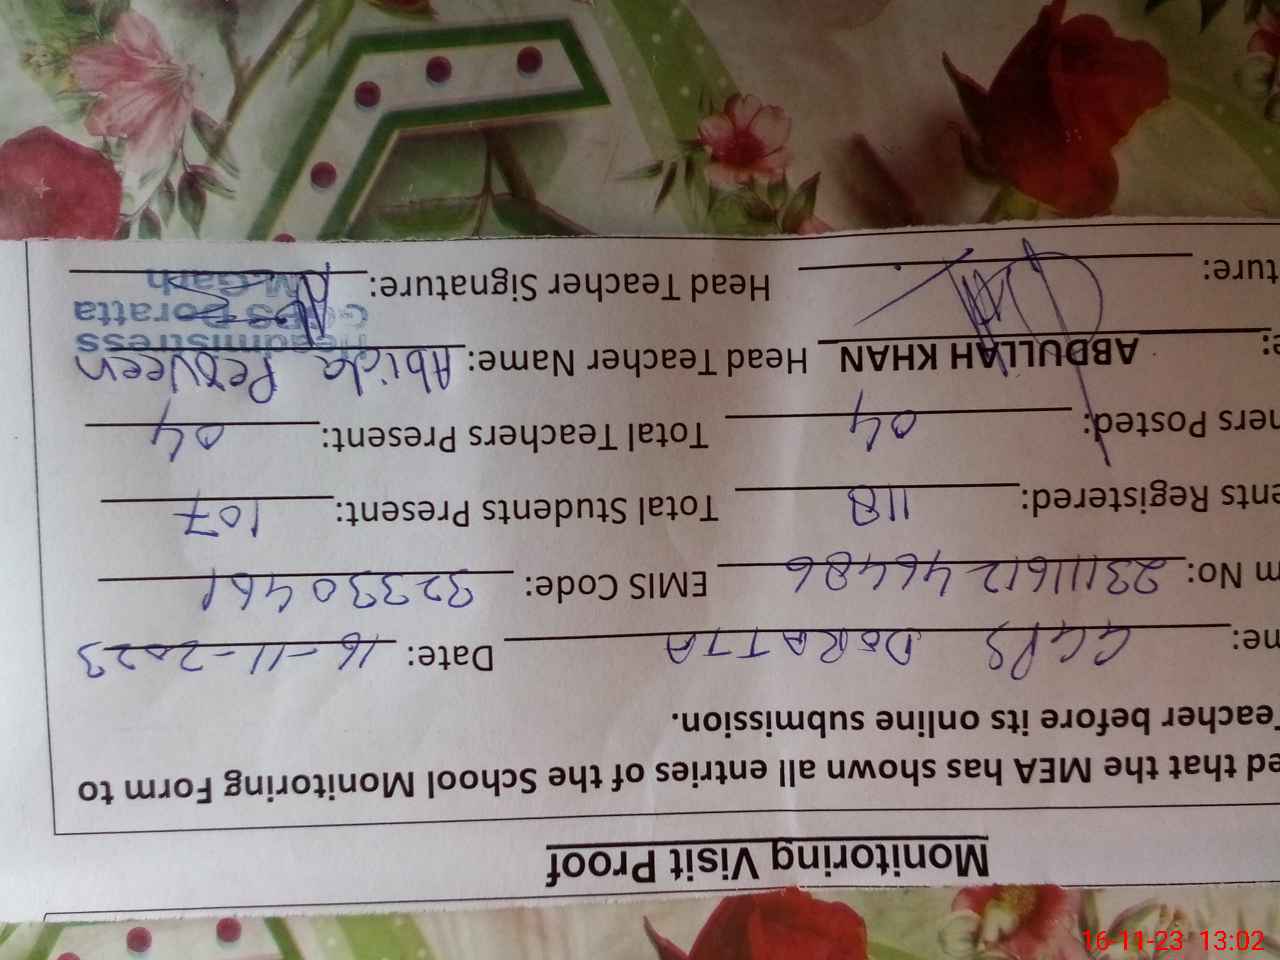 Monitoring Visit Proof
ed that the MEA has shown all entries of the School Monitoring Form to
Teacher before its online submission.
me: GGPS DORATTA Date: 16-11-2023
m No: 2311161246486 EMIS Code: 32330461
ents Registered: 118 Total Students Present: 107
hers Posted: 04 Total Teachers Present: 04
e: ABDULLAH KHAN Head Teacher Name: Abida Perveen
ture: Head Teacher Signature:
Headmistress
GGPS Doratta
M.Garh
16-11-23 13:02